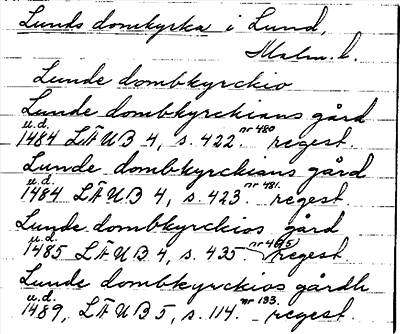 Lunds domkyrka i Lund,
Malm. l.
Lunde dombkyrckio
Lunde dombkyrckians gård
u.d.
1484 LÄUB 4, s. 422. nr 480 regest.
Lunde dombkyrckians gård
u.d.
1484 LÄUB 4, s. 423. nr 481. regest.
Lunde dombkyrckios gård
u.d.
1485 LÄUB 4, s. 435. nr 495) regest
Lunde dombkyrckios gårdh
u.d.
1489, LÄUB 5, s. 114. nr 133. regest.